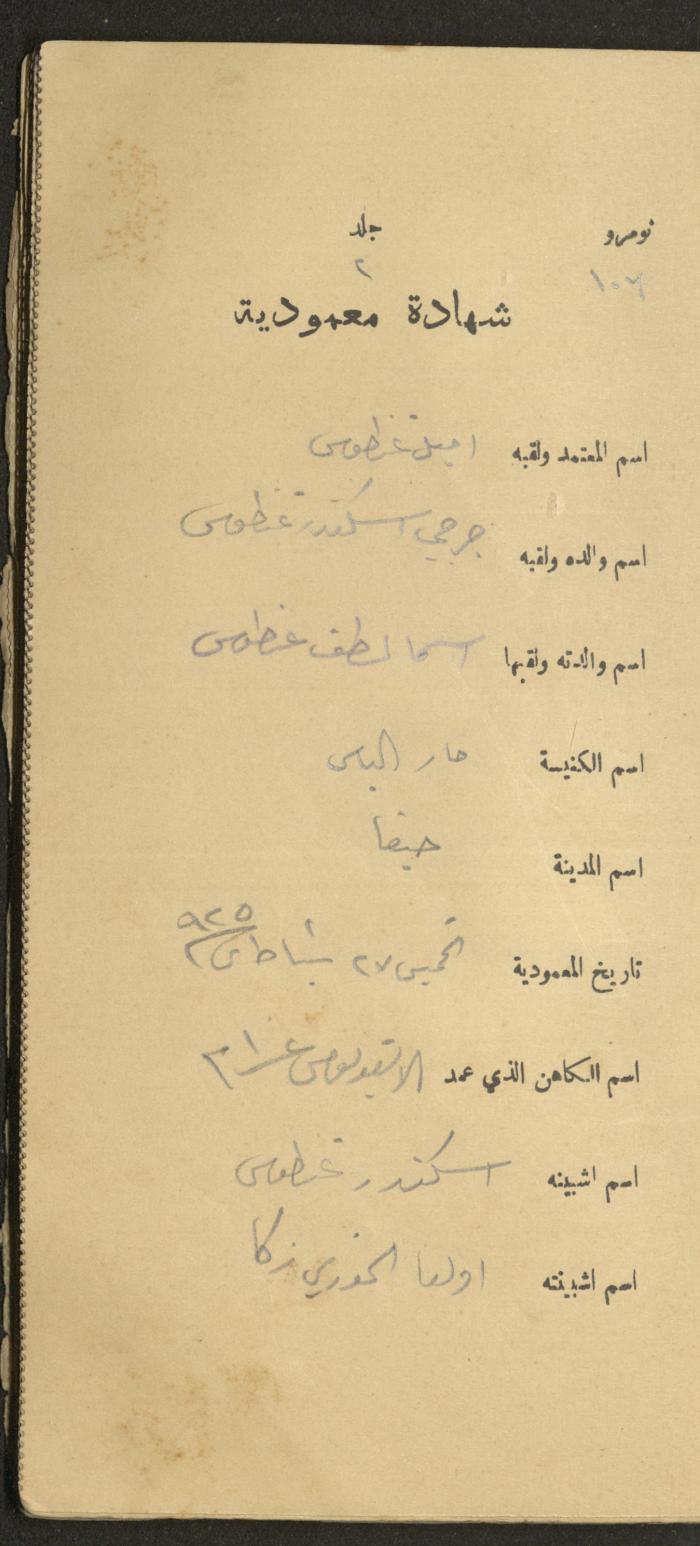 نومرو جلد
٢
شهادة معمودية
اسم المعتمد ولقبه اميل غطوس
اسم والده ولقبه جرجي اسكندر غطوس
اسم والدته ولقبها اسما لطف غطوس
اسم الكنيسة مار الياس
اسم المدينة حيفا
تاريخ المعمودية الخميس ٢٧ شباط ٩٢٥
اسم الكاهن الذي عمد
اسم اشبينه اسكندر غطوس
اسم اشبينته اولغا الخوري زكا